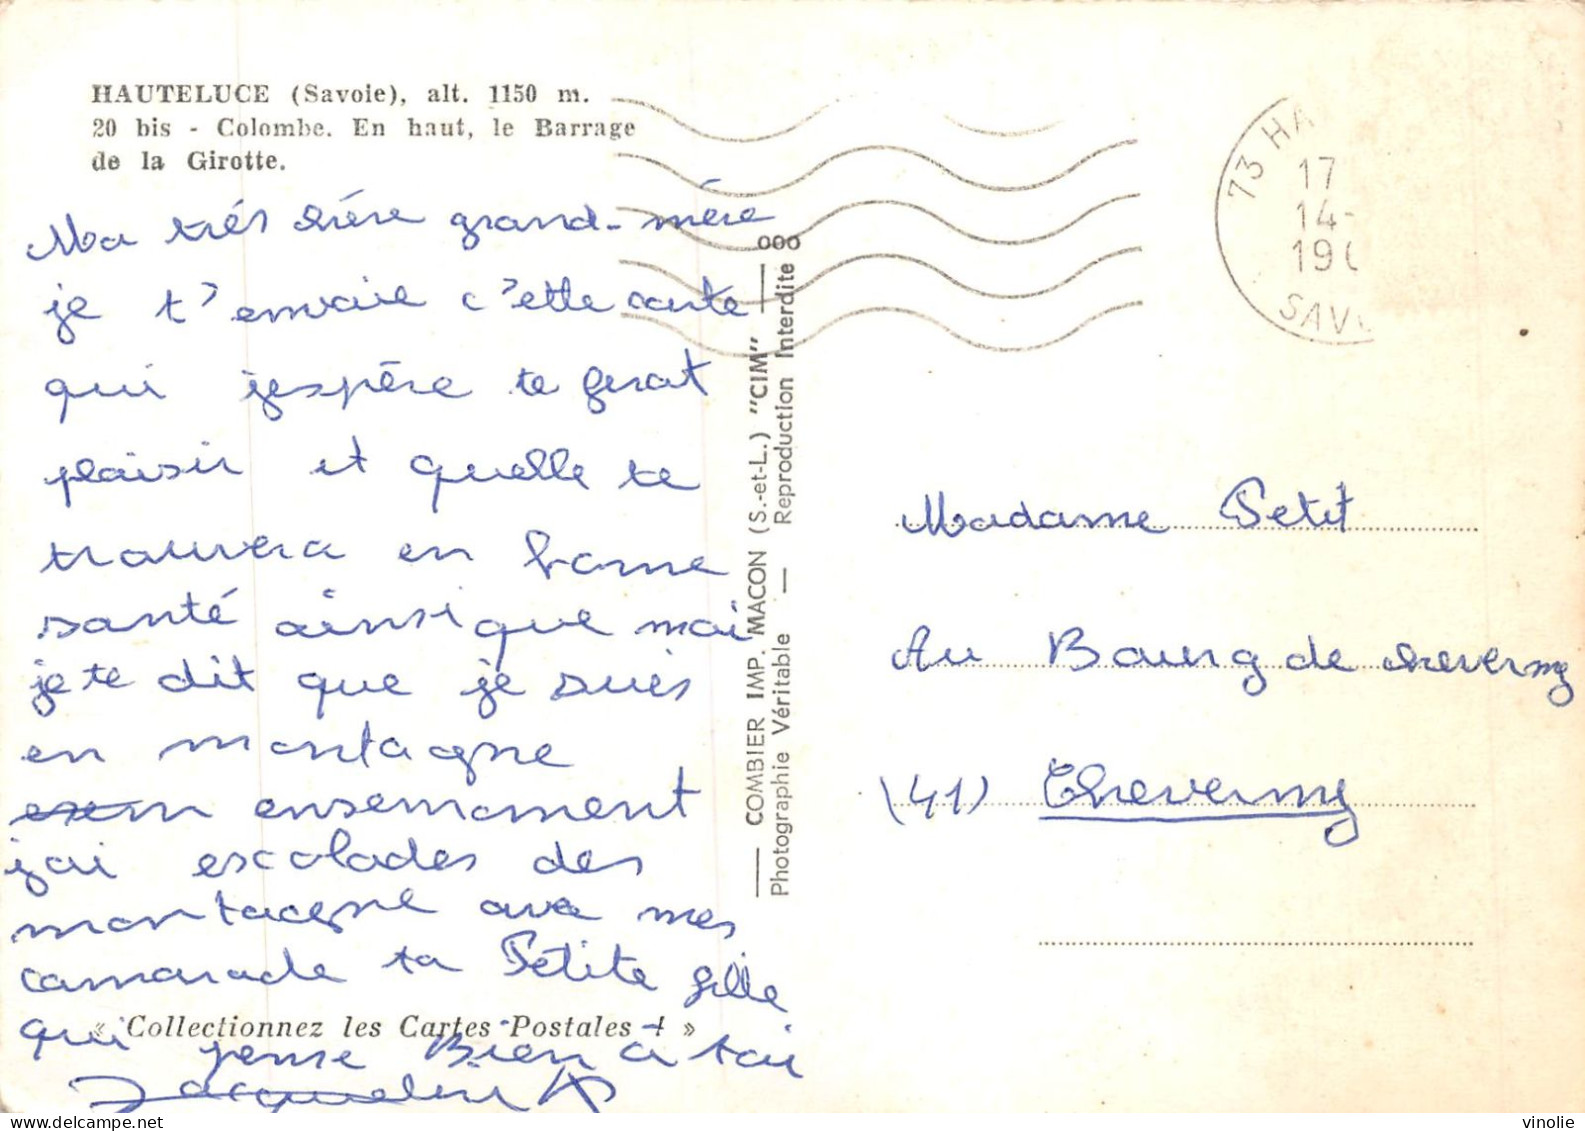 HAUTELUCE (Savoie), alt. 1150 m.
20 bis - Colombe. En haut, le Barrage
de la Girotte.
Ma trés chére grand-mére
je t'envoie c'ette carte
qui jespère te ferat
plaisir et quelle te
trouvera en bonne
santé ainsi que moi
je te dit que je suis
en montagne
ensemoment
j'ai escalades des
montagne avec mes
camarade ta Petite fille
qui pense Bien a toi
Jacqueline
« Collectionnez les Cartes Postales ! »
COMBIER IMP. MACON (S.-et-L.) "CIM"
Photographie Véritable — Reproduction Interdite
73 HA
17
14-
19
SAV
Madame Petit
Au Bourg de cheverny
(41) Cheverny
vinolie